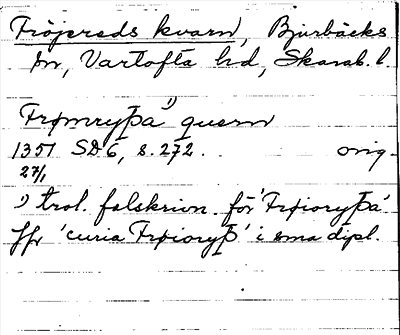 Fröjereds kvarn, Bjurbäcks
sn, Vartofta hd, Skarab. l.
Frømryþa¹⁾ quern
1351 SD 6, s. 272. orig.
27/1
¹⁾ trol. felskrivn. för 'Frøioryþa'
jfr 'curia Frøioryþ' i sma dipl.